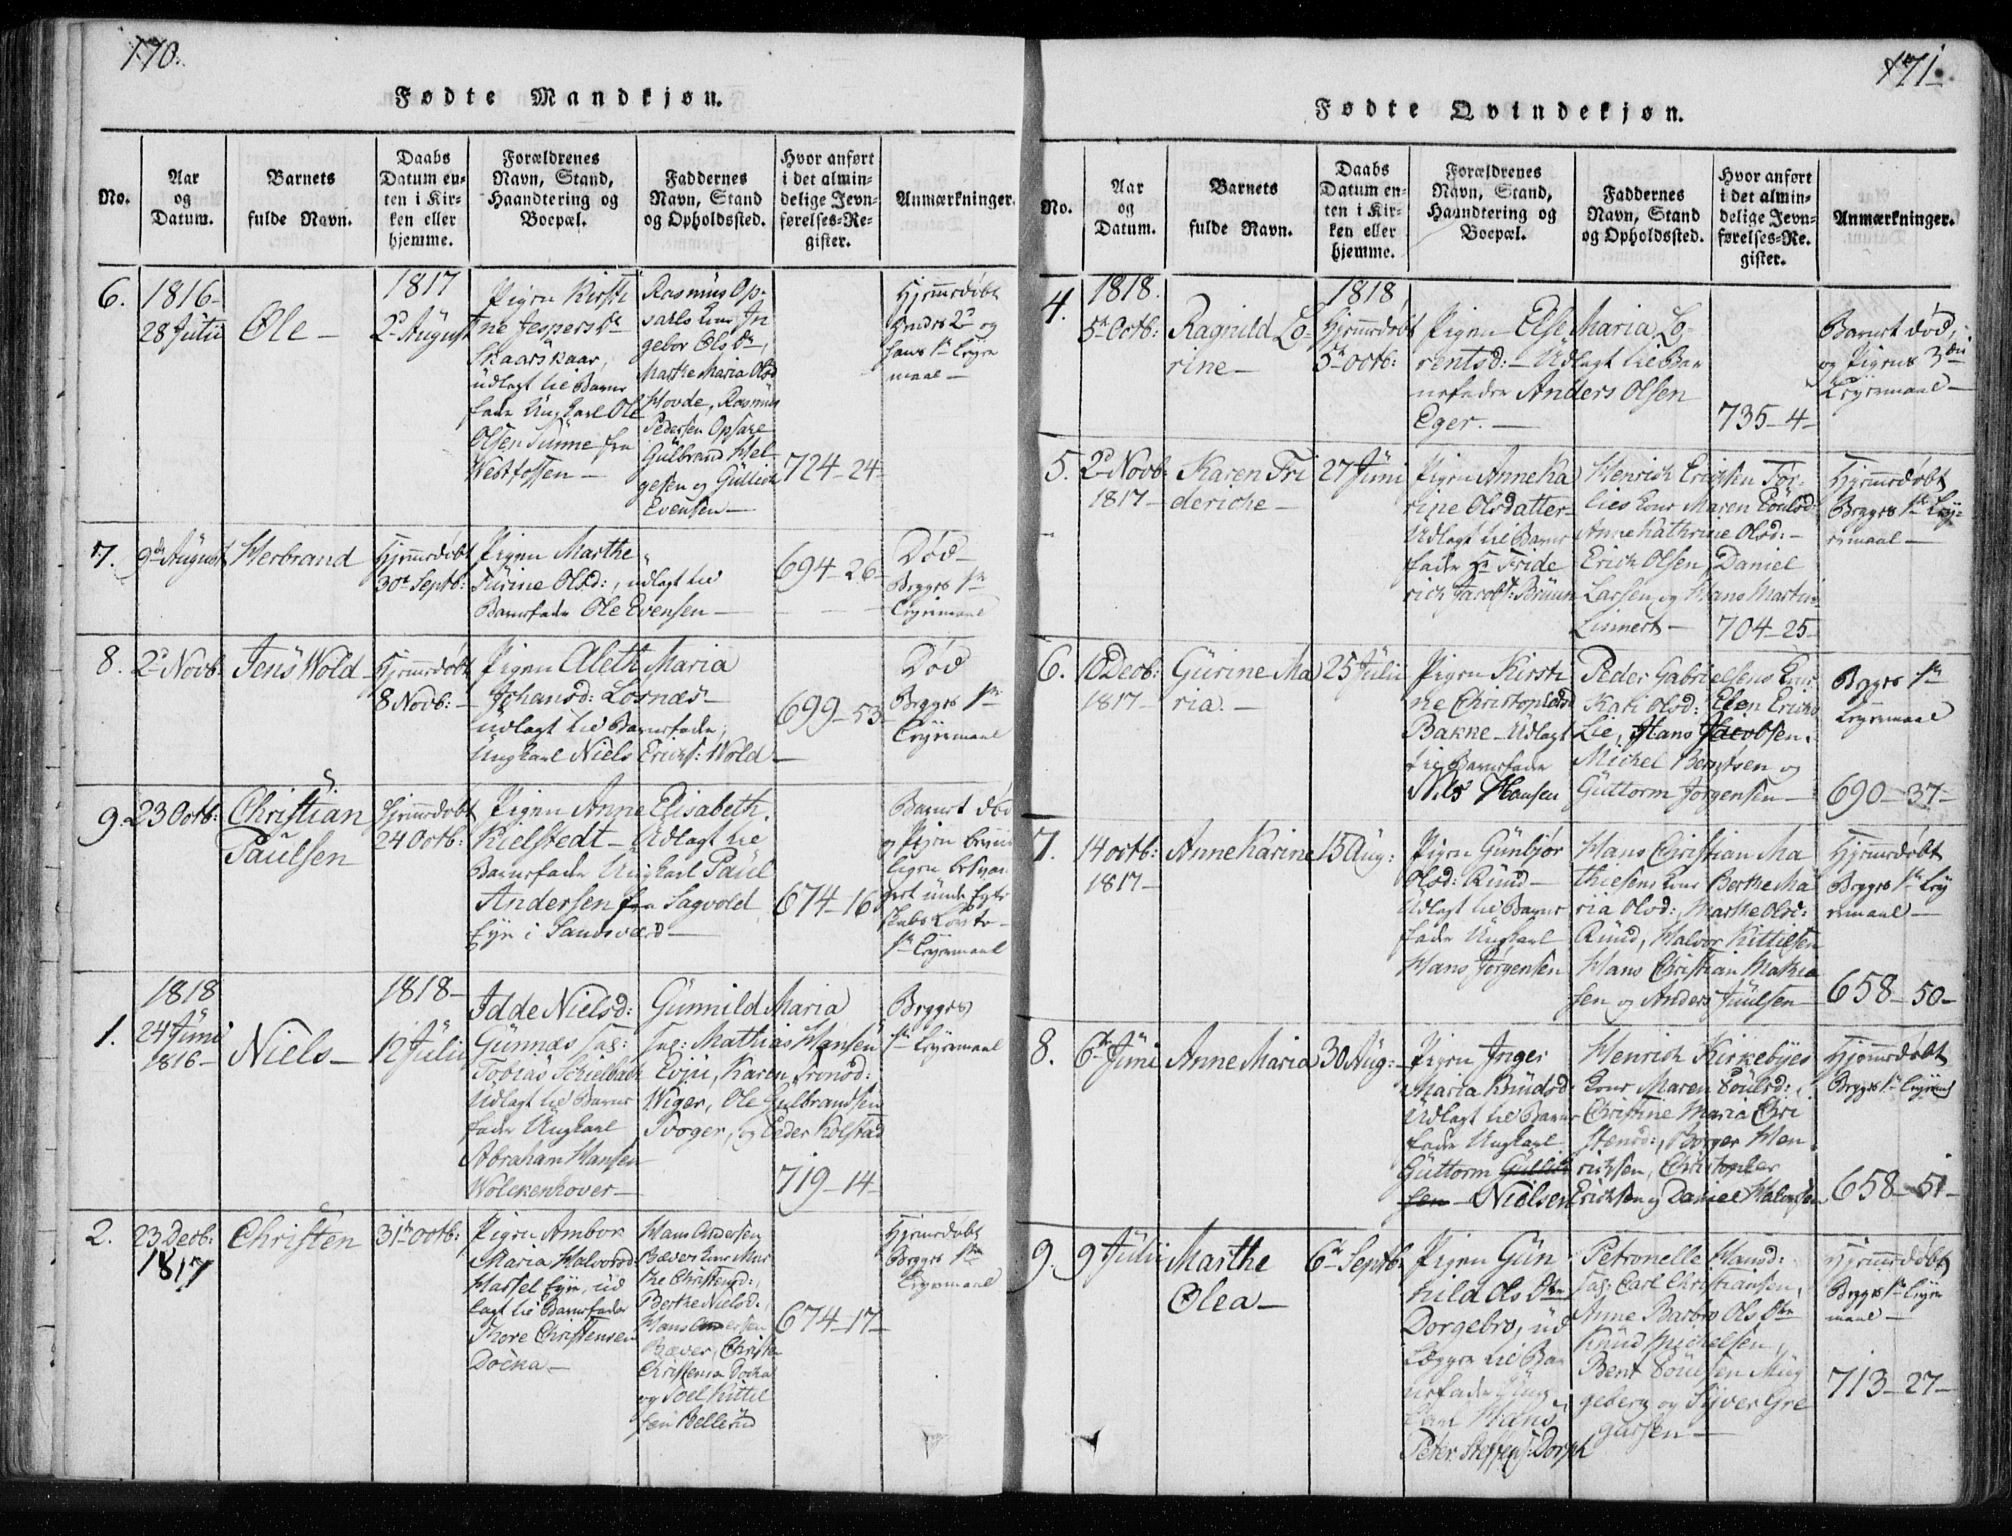 170.
Fødte Mandkjøn.
No.
Aar
og
Datum.
Barnets
fulde Navn.
Daabs
Datum en-
ten i Kir-
ken eller
hjemme.
Forældrenes
Navn, Stand,
Haandtering og
Boepæl.
Faddernes
Navn, Stand
og Opholdssted.
Hvor anført
i det almin-
delige Jevn-
førelses-Re-
gister.
Anmærkninger.
6.
1816
28 Julii
Ole
1817
2d August
Pigen Kirsti
ne Jespersdr
Skaarskaar,
udlagt til Barne
fader Ungkarl Ole
Olsen Tunne fra
Westfossen
Rasmus Op-
sahls Kone In
gebor Olsdr,
Marthe Maria Olsd
Hovde, Rasmus
Pedersen Opsahl
Gulbrand Hel-
gesen og Gullich
Evensen
724-24
Hjemmedøbt
Hendes 2d og
hans 1ste Leyer
maal
7.
9de August
Herbrand
Hjemmedøbt
30te Septb:
Pigen Marthe
Turine Olsd:, udlagt til
Barnefader Ole Evensen
694-26
Død
Begges 1ste
Leyermaal
8.
2d Novb.
Jens Wold
Hjemmedøbt
8 Novb:
Pigen Aleth Maria
Johansd: Losnæs
udlagt til Barnefader,
Ungkarl Niels Erichs: Wold
699-53
Død
Begges 1ste
Leyermaal
9.
23 Octb:
Christian
Paulsen
Hjemmedøbt
24 Octb:
Pigen Anne Elisabeth
Kielstedt - Udlagt til
Barnefader Ungkarl Paul
Andersen fra Sagvold
Eye i Sandsværd
674-16
Barnet død
og Pigen
ligen besvan
gret under Egte
skabs Løfte
1ste Leyermaal
1.
1818
24 Juni
1816
Niels
1818
12 Julii
Idde Nielsd:
Gunnæs Sag:
Tobias Schielbak
Udlagt til Barne
fader Ungkarl
Abraham Hansen
Wolckenhover
Gunnild Maria
Sag: Mathias Hansen
Evju, Karen Tronsd:
Wiger, Ole Gulbrandsen
Svoger, og Peder Kolstad
719-14
Begges
1ste Leyermaal
2.
23 Decb:
1817
Christen
31te Octb:
Pigen Ambor
Maria Halvorsd:
Hassel Eye, ud
lagt til Barnefader
Thore Christensen
Docka
Hans Andersen
Bæver Kone Mar
the Christensd:,
Berthe Nielsd:,
Hans Andersen
Bæver, Christen
Christensen Docka
og Joel Kittel
sen Bellerud
674-17
Hjemmedøbt
Begges 1ste
Leyermaal
171.
Fødte Qvindekjøn.
No.
Aar
og
Datum.
Barnets
fulde Navn.
Daabs
Datum en-
ten i Kir-
ken eller
hjemme.
Forældrenes
Navn, Stand,
Haandtering og
Boepæl.
Faddernes
Navn, Stand
og Opholdssted.
Hvor anført
i det almin-
delige Jevn-
førelses-Re-
gister.
Anmærkninger.
4.
1818.
5te Octb:
Ragnild Lo-
rine
1818
Hjemmedøbt
5te Octb:
Pigen Else Maria Lo-
rentsd: - Udlagt til Bar
nefader Anders Olsen
Eger.
735-4
Barnet død,
og Pigens 3die
Leyermaal
5.
2d Novb:
1817
Karen Fri
deriche
27 Juni
Pigen Anne Ka
rine Olsdatter
Udlagt til Barne
fader Hr Fride
rich Jacobs: Bruun
Henrich Erichsen Før-
lies Kone Maren Poulsd:
Anne Kathrine Olsd:
Erich Olsen, Daniel
Larsen og Hans Martin
Linnert
704-25
Hjemmedøbt
Begges 1ste Ley-
ermaal
6.
10 Decb:
1817
Gurine Ma
ria
25 Julii
Pigen Kirsti
ne Christophersd
Bakke - Udlagt
til Barnefader
Nils Hansen
Peder Gabrielsens Kone
Kari Olsd: Elen Erichs
Lie, Hans Jacobsen.
Michel Bentsen og
Guttorm Jørgensen
Begges 1ste
Leyermaal
690-37
7.
14 Octb:
1817
Anne Karine
15 Aug:
Pigen Gunbjør
Olsd: Ruud
Udlagt til Barne
fader Ungkarl
Hans Jørgensen
Hans Christian Ma
thiesens Kone Berthe Ma
ria Olsd: Marthe Olsd:
Ruud, Halvor Kittilsen
Hans Christian Mathia
sen og Anders Juulsen
Hjemmedøbt
Begges 1ste Ley
ermaal
658-50
8.
6te Juni
Anne Maria
30 Aug:
Pigen Inger
Maria Knudsd:
Udlagt til Barne
fader Ungkarl
Guttorm Gullich
sen Nielsen
Henrich Kirkebyes
Kone Maren Poulsd:,
Christine Maria Chri
stensd:, Børger Hen
richsen, Christopher
Erichsen og Daniel Halvorsen
Hjemmedøbt
Begges 1ste Leyermaal
658-51
9.
9 Julii
Marthe
Olea
6te Septb:
Pigen Gun
hild Olsdtr
Dorgebro, ud
lægger til Bar
nefader Ung
karl Hans
Peter Steffens: Dorph
Petronelle Hansd:
Sag: Carl Christiansen,
Anne Barbro Olsdtr
Knud Michelsen,
Bent Poulsen Mug
geberg og Syver Gre
gersen
Hjemmedøbt
Begges 1ste Leyer
maal
713-27